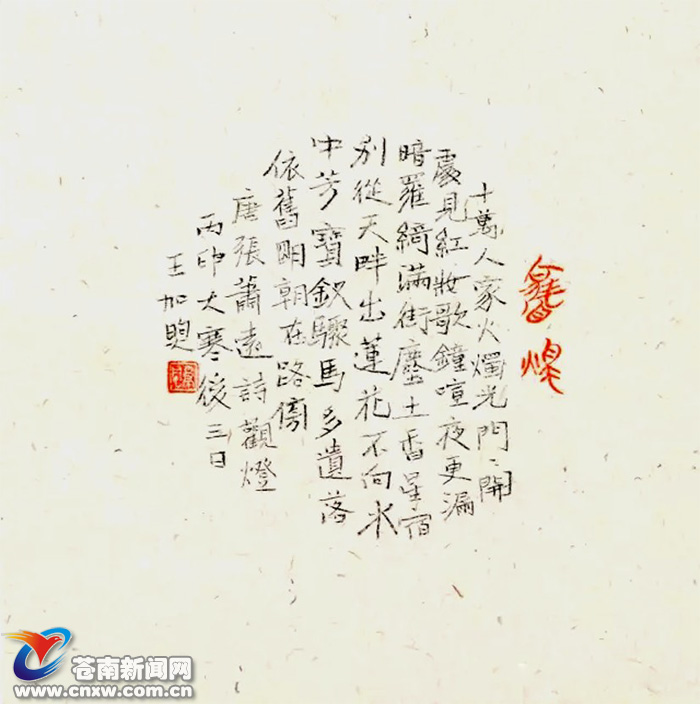 十萬人家火燭光門〻開
處見紅妝歌鐘喧夜更漏
暗羅綺滿街塵土香星宿
別從天畔出蓮花不向水
中芳寶釵驟馬多遺落
依舊明朝在路傍
唐張蕭遠詩觀燈
丙申大寒後三日
王加煚
苍南新闻网
www.cnxw.com.cn